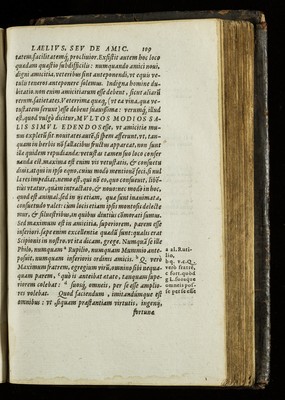 LAELIVS, SEV DE AMIC. 109
tatem, facilitatemq́; proclivior. Existit autem hoc loco
quædam quæstio subdifficilis: numquando amici noui,
digni amicitia, veteribus sint anteponendi, vt equis ve-
tulis teneros anteponere solemus. Indigna homine du-
bitatio. non enim amicitiarum esse debent, sicut aliarū
rerum, satietates. Veterrima quæq́; (vt ea vina, quæ ve-
tustatem ferunt) esse debent suauissima: verumq́; illud
est, quod vulgò dicitur, MVLTOS MODIOS SA-
LIS SIMVL EDENDOS esse, vt amicitiæ mu-
nus expletū sit. nouitates autē, si spem afferunt, vt, tan-
quam in herbis nō fallacibus fructus appareat, non sunt
illæ quidem repudiandæ: vetustas tamen suo loco conser
uanda est. maxima est enim vis vetustatis, & consuetu
dinis. atqui in ipso equo, cuius modò mentionē feci, si nul
la res impediat, nemo est, qui nō eo, quo consueuit, libē-
tius vtatur, quàm intractato, & nouo: nec modò in hoc,
quod est animal, sed in iis etiam, quæ sunt inanimata,
consuetudo valet: cùm locis etiam ipsis montosis delecte
mur, & siluestribus, in quibus diutius commorati sumus.
Sed maximum est in amicitia, superiorem, parem esse
inferiori. sæpe enim excellentiæ quædā sunt: qualis erat
Scipionis in nostro, vt ita dicam, grege. Numquā se ille
Philo, numquam a Rupilio, numquam Mummio ante-
posuit, numquam inferioris ordinis amicis. b Q. verò
Maximum fratrem, egregium virū, omnino sibi nequa-
quam parem, c quòd is anteibat ætate, tanquam supe-
riorem colebat: d suosq́; omneis, per se esse amplio-
res volebat. Quod faciendum, imitandúmque est
omnibus: vt, si quam præstantiam virtutis, ingenij,
fortunæ
a al. Ruti-
lio,
b q. v.c. Q.
verò fratrē,
c fort. quòd
d L. suosque
omneis pos-
se per se esse